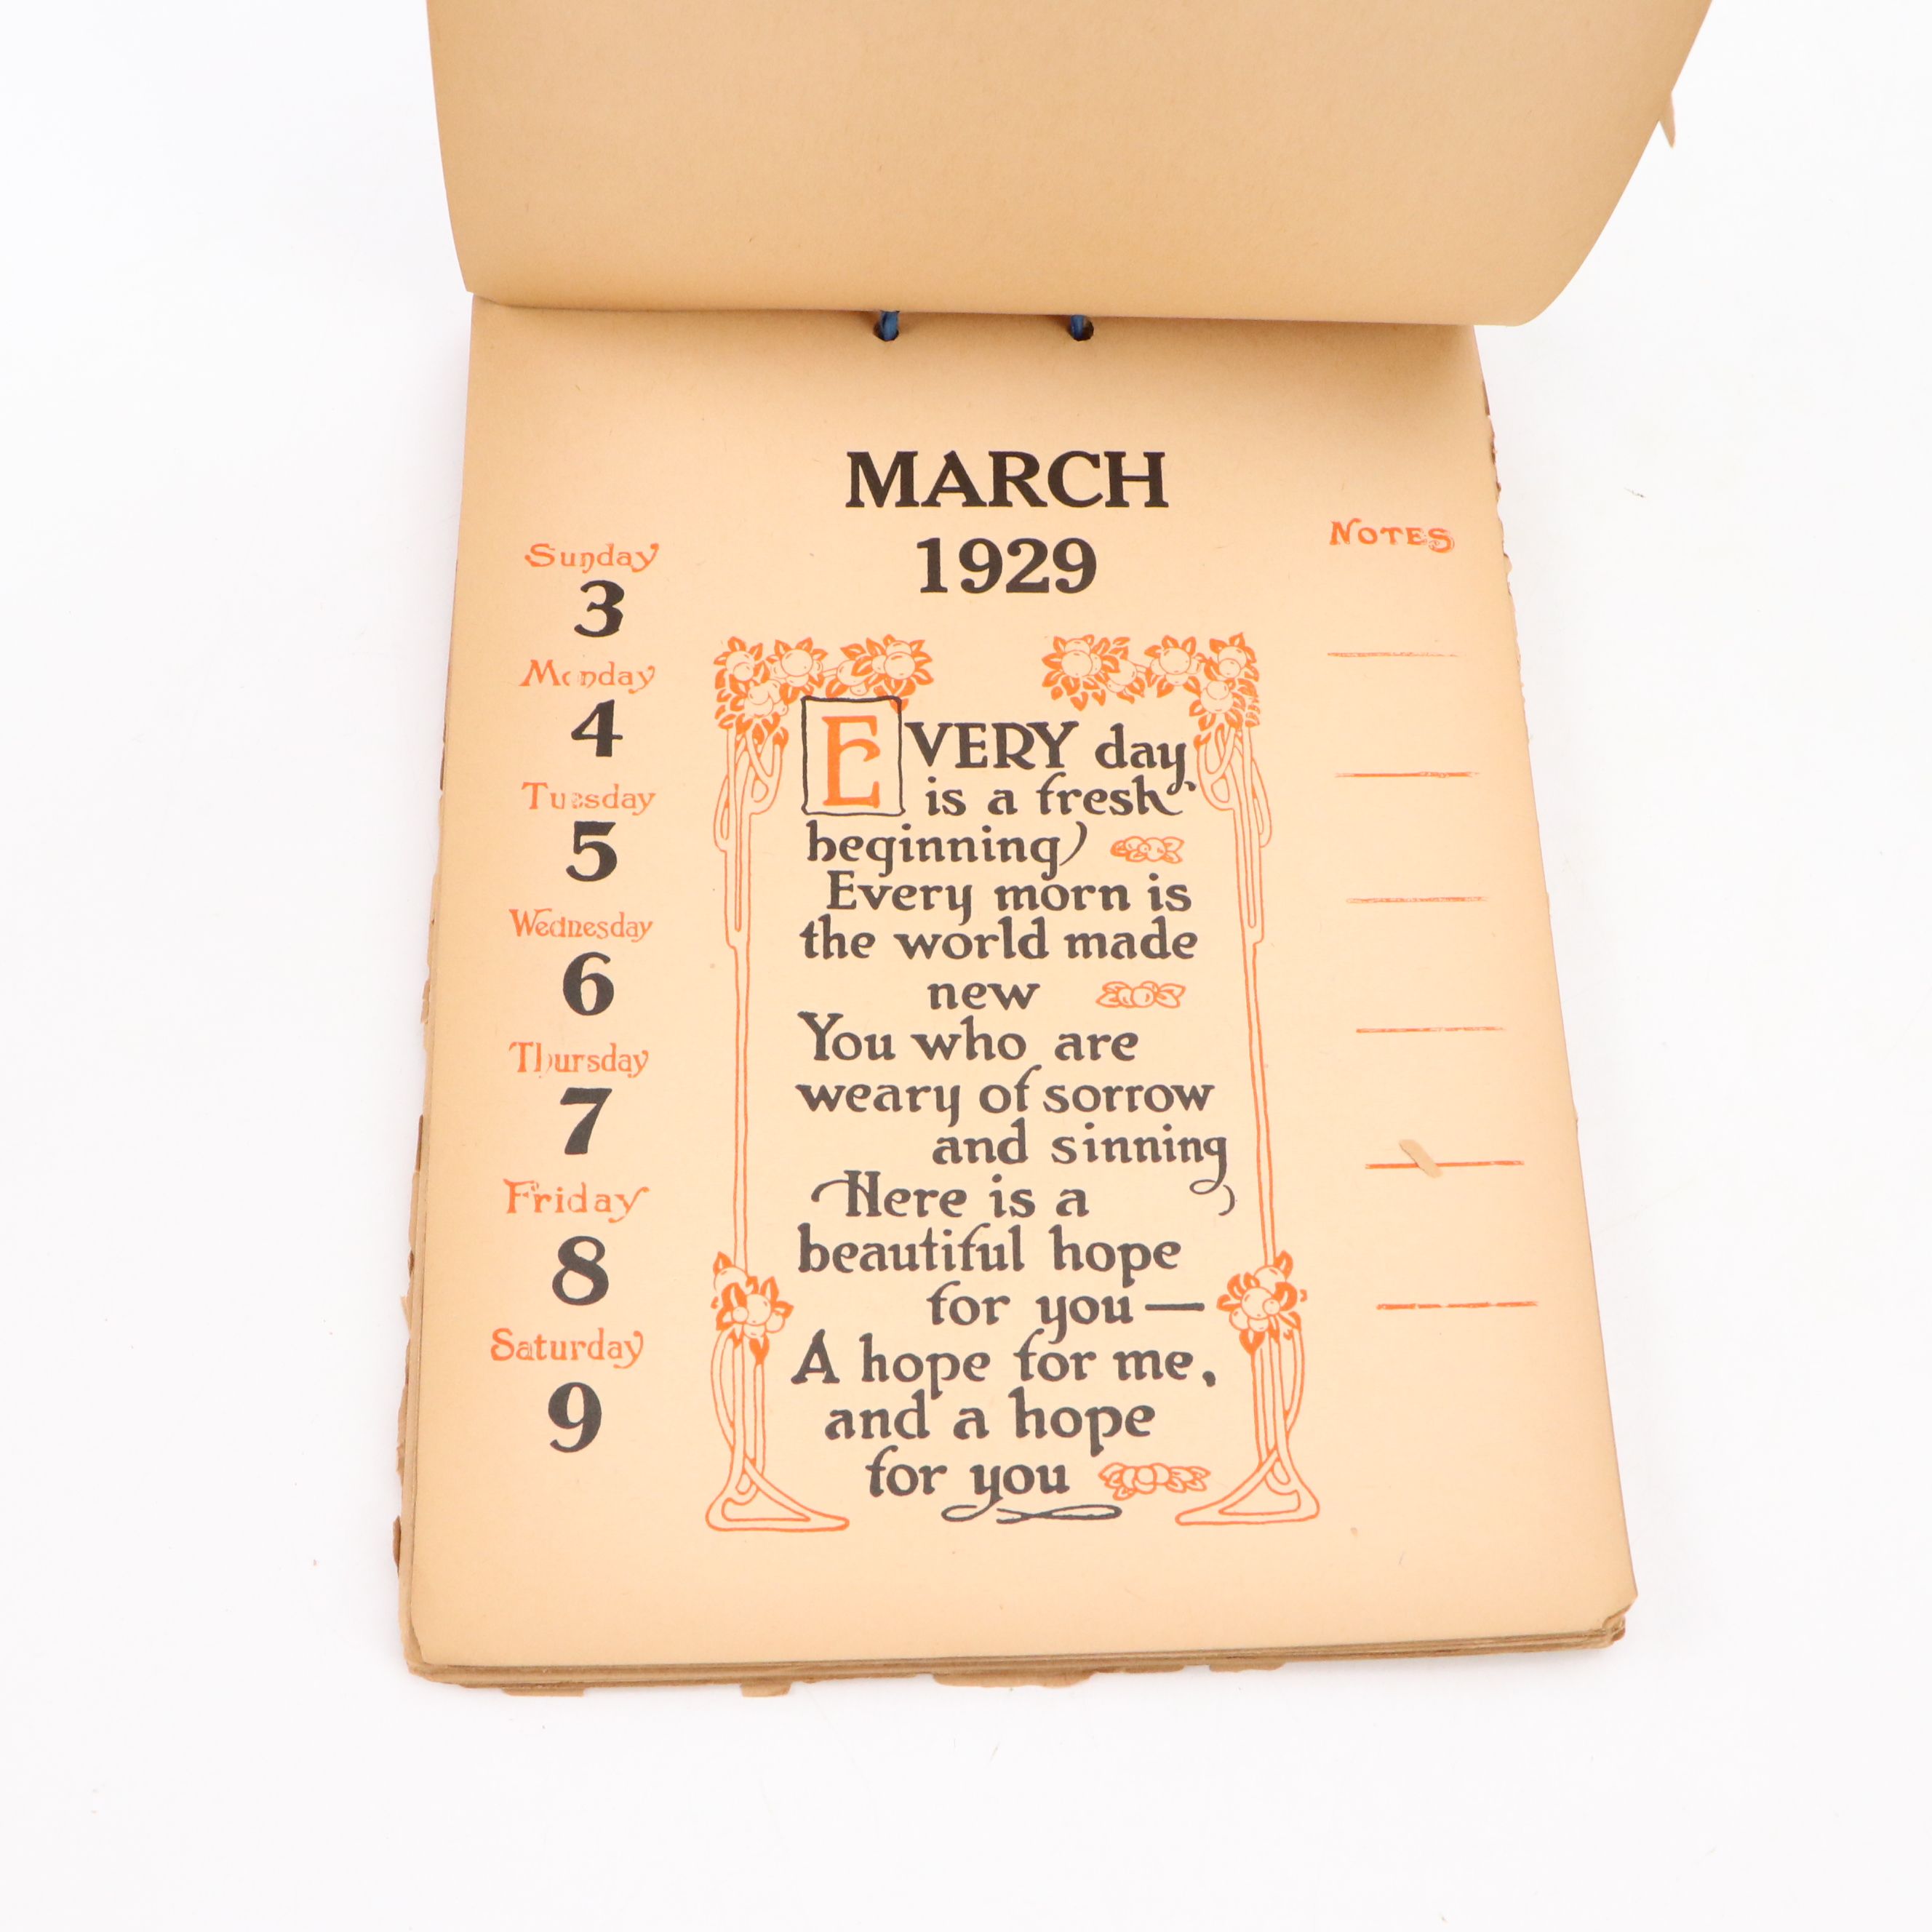 MARCH
1929
Sunday
3
Monday
4
Tuesday
5
Wednesday
6
Thursday
7
Friday
8
Saturday
9
EVERY day
is a fresh
beginning
Every morn is
the world made
new
You who are
weary of sorrow
and sinning
Here is a
beautiful hope
for you —
A hope for me,
and a hope
for you
NOTES